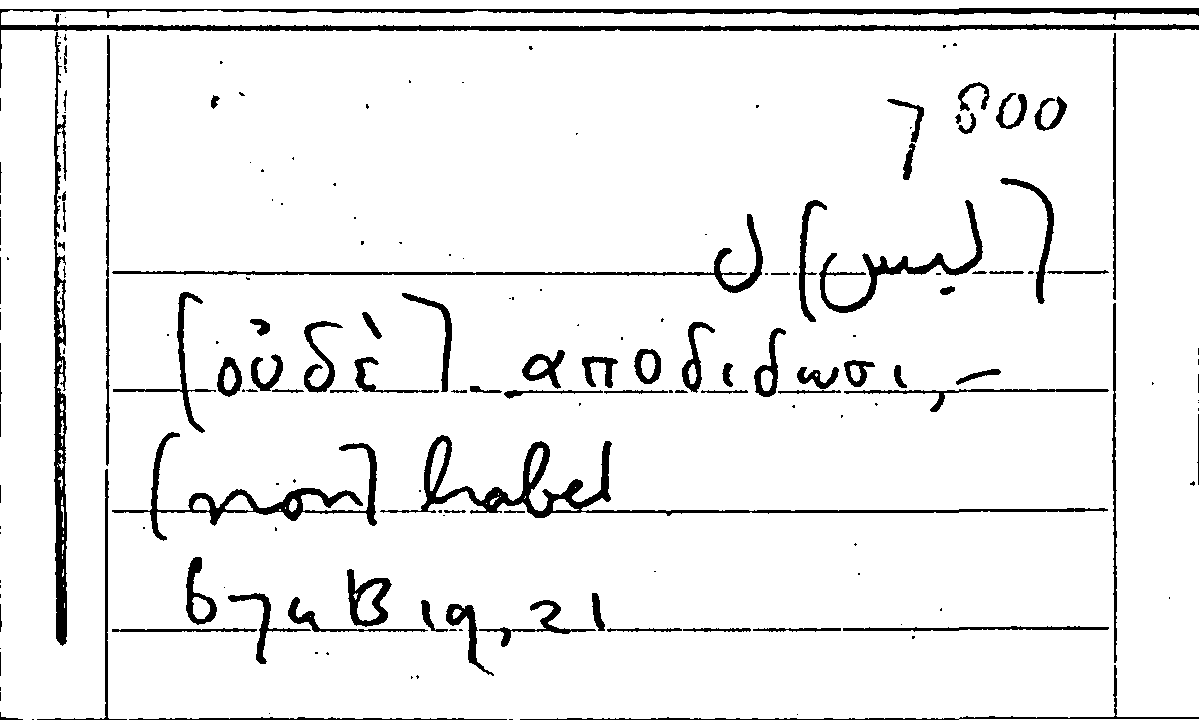 7 800
[ليس] ل
[οὐδὲ] αποδιδωσι, –
[non] habet
674 B 19, 21